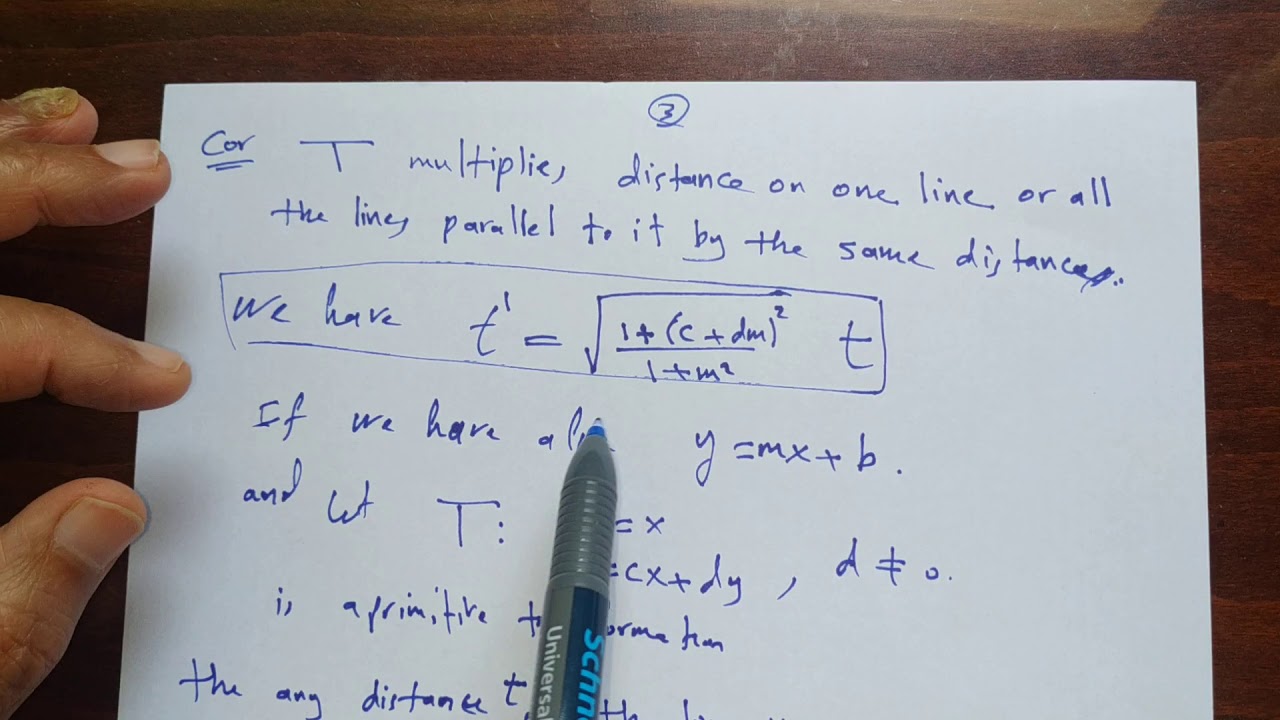 3
Cor T multiplies distance on one line or all
the lines parallel to it by the same distances.
We have t' = √((1+(c+dm)²)/(1+m²)) t
If we have a y = mx + b.
and let T: = x
= cx + dy , d ≠ 0.
is a primitive
the any distance t
Schn
Universal